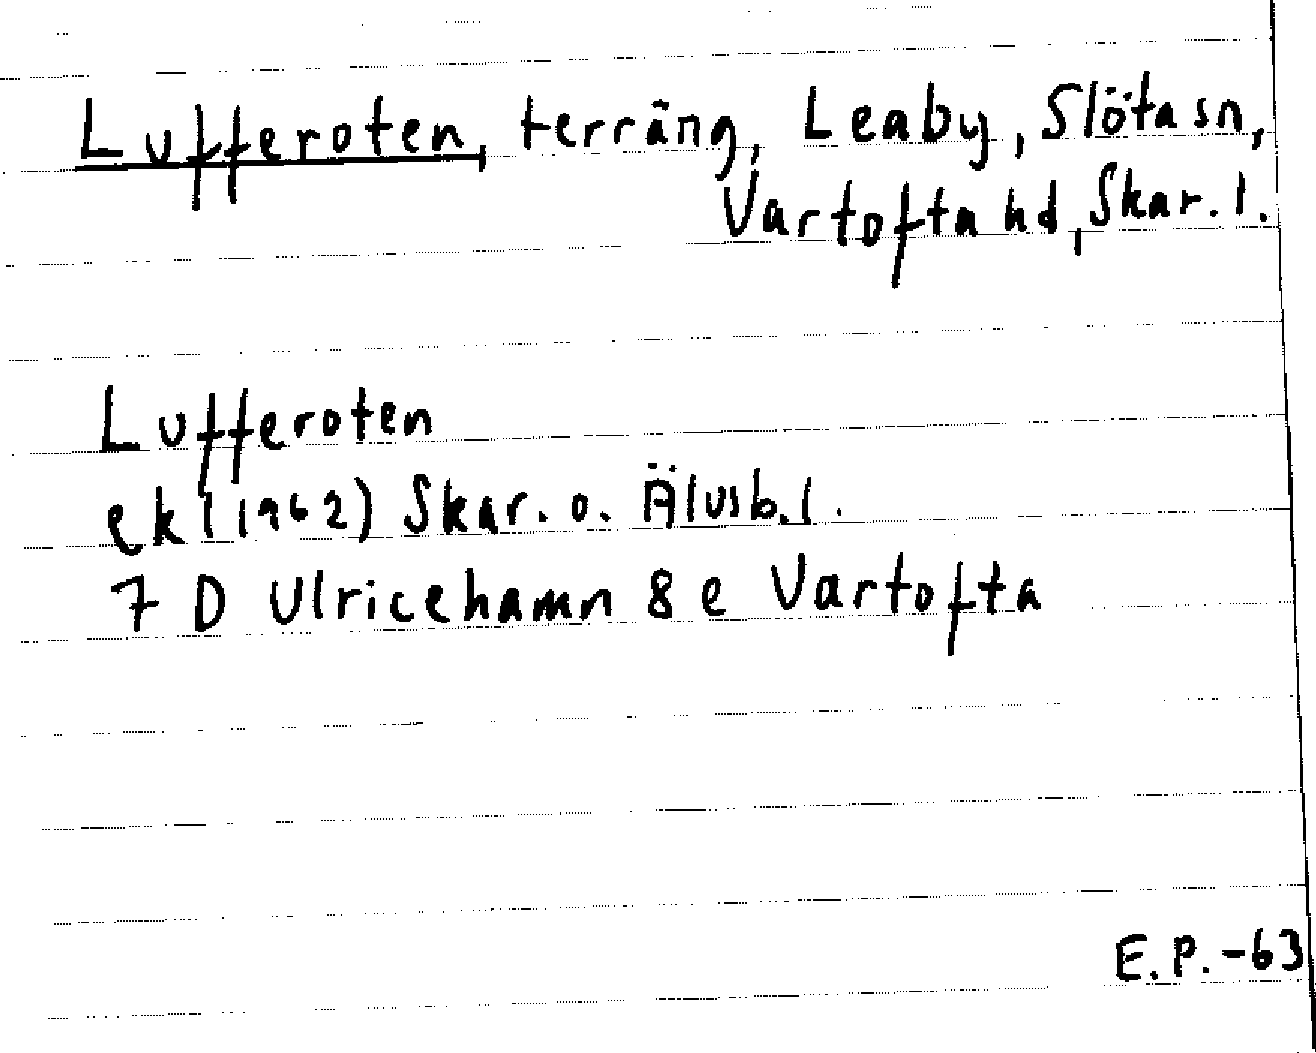 Lufferoten, terräng, Leaby, Slöta sn,
Vartofta hd, Skar. l.
Lufferoten
ek (1962) Skar. o. Älvsb. l.
7 D Ulricehamn 8 e Vartofta
E. P. -63